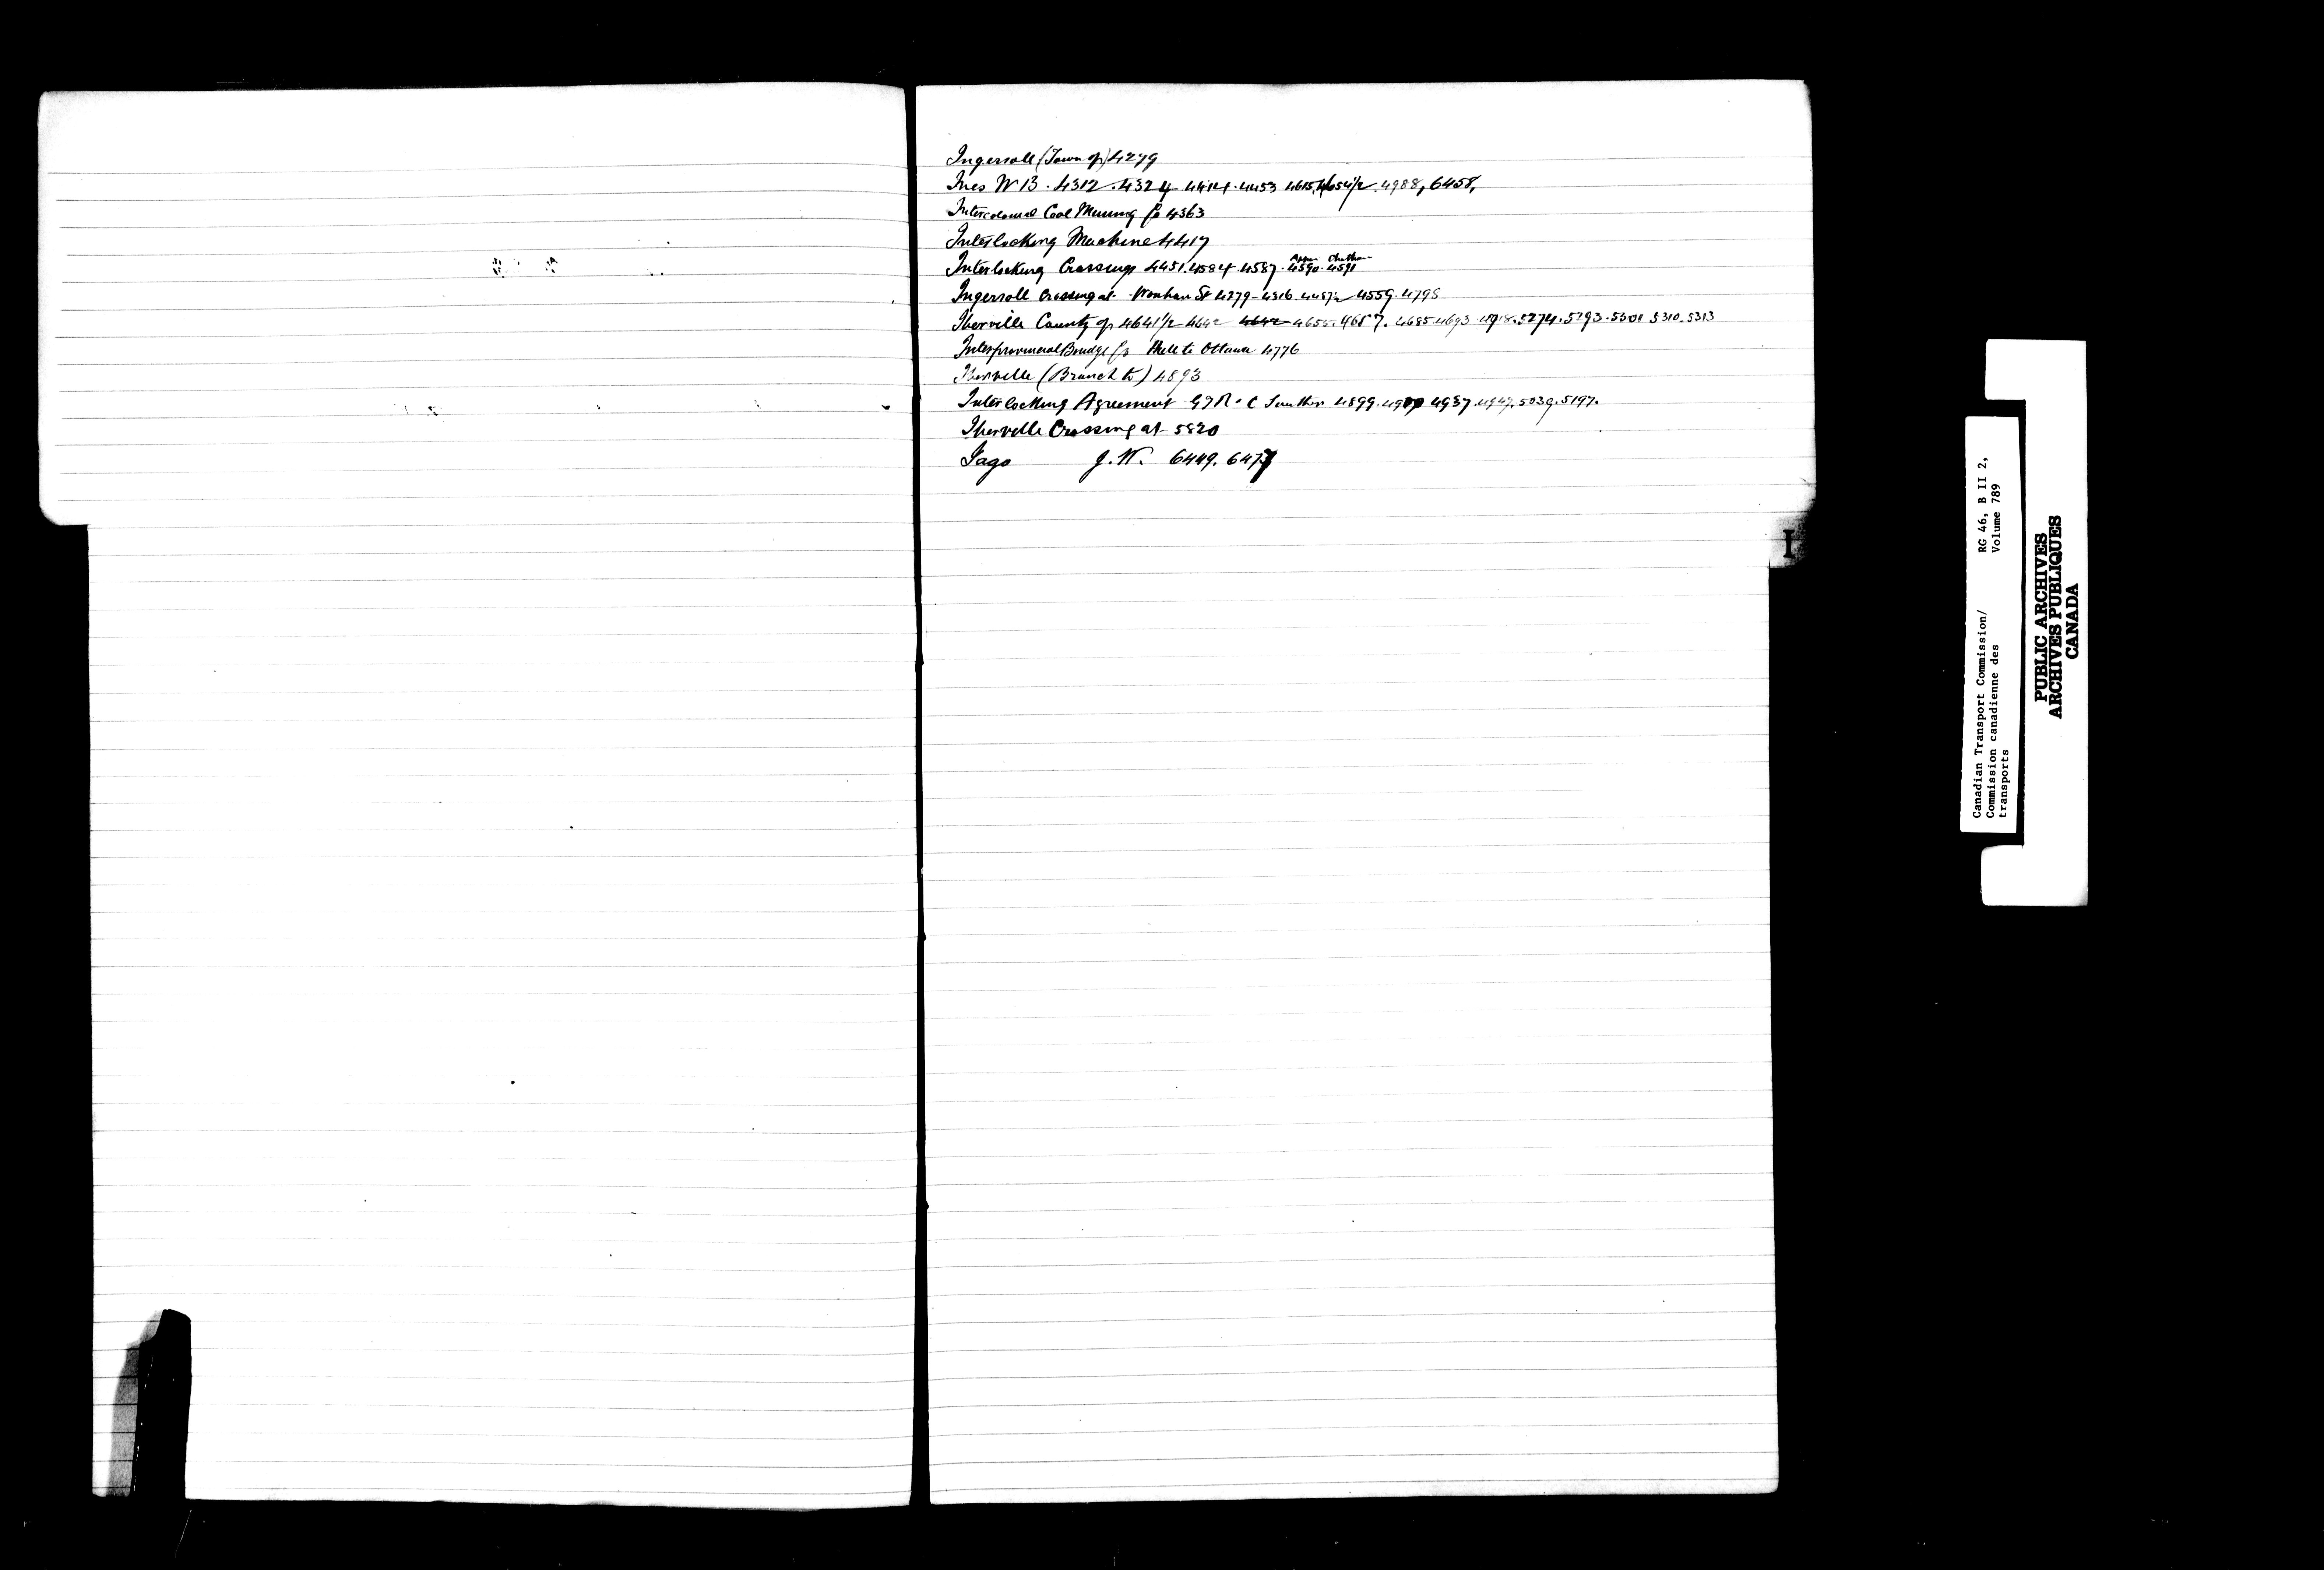 Ingersoll (Town of) 4279
Ives W B. 4312. 4324 4414. 4453 4615. 4654½. 4988, 6458,
Intercolonial Coal Mining Co 4363
Interlocking Machine 4417
Interlocking Crossings 4451. 4584. 4587. 4590. Chatham 4591
Ingersoll Crossing at Wonham St 4279-4316. 4457½ 4559. 4795
Iberville County of 4641½ 4642 4642 4655. 4657. 4685. 4693. 4918. 5274. 5293. 5301 5310. 5313
Interprovincial Bridge Co Hull to Ottawa 4776
Iberville (Branch to) 4893
Interlocking Agreement GTR & C Southern 4899. 4937. 4947. 5039. 5197.
Iberville Crossing at 5820
Iago J. W. 6449. 6477
I
Canadian Transport Commission/ RG 46, B II 2,
Commission canadienne des Volume 789
transports
PUBLIC ARCHIVES
ARCHIVES PUBLIQUES
CANADA